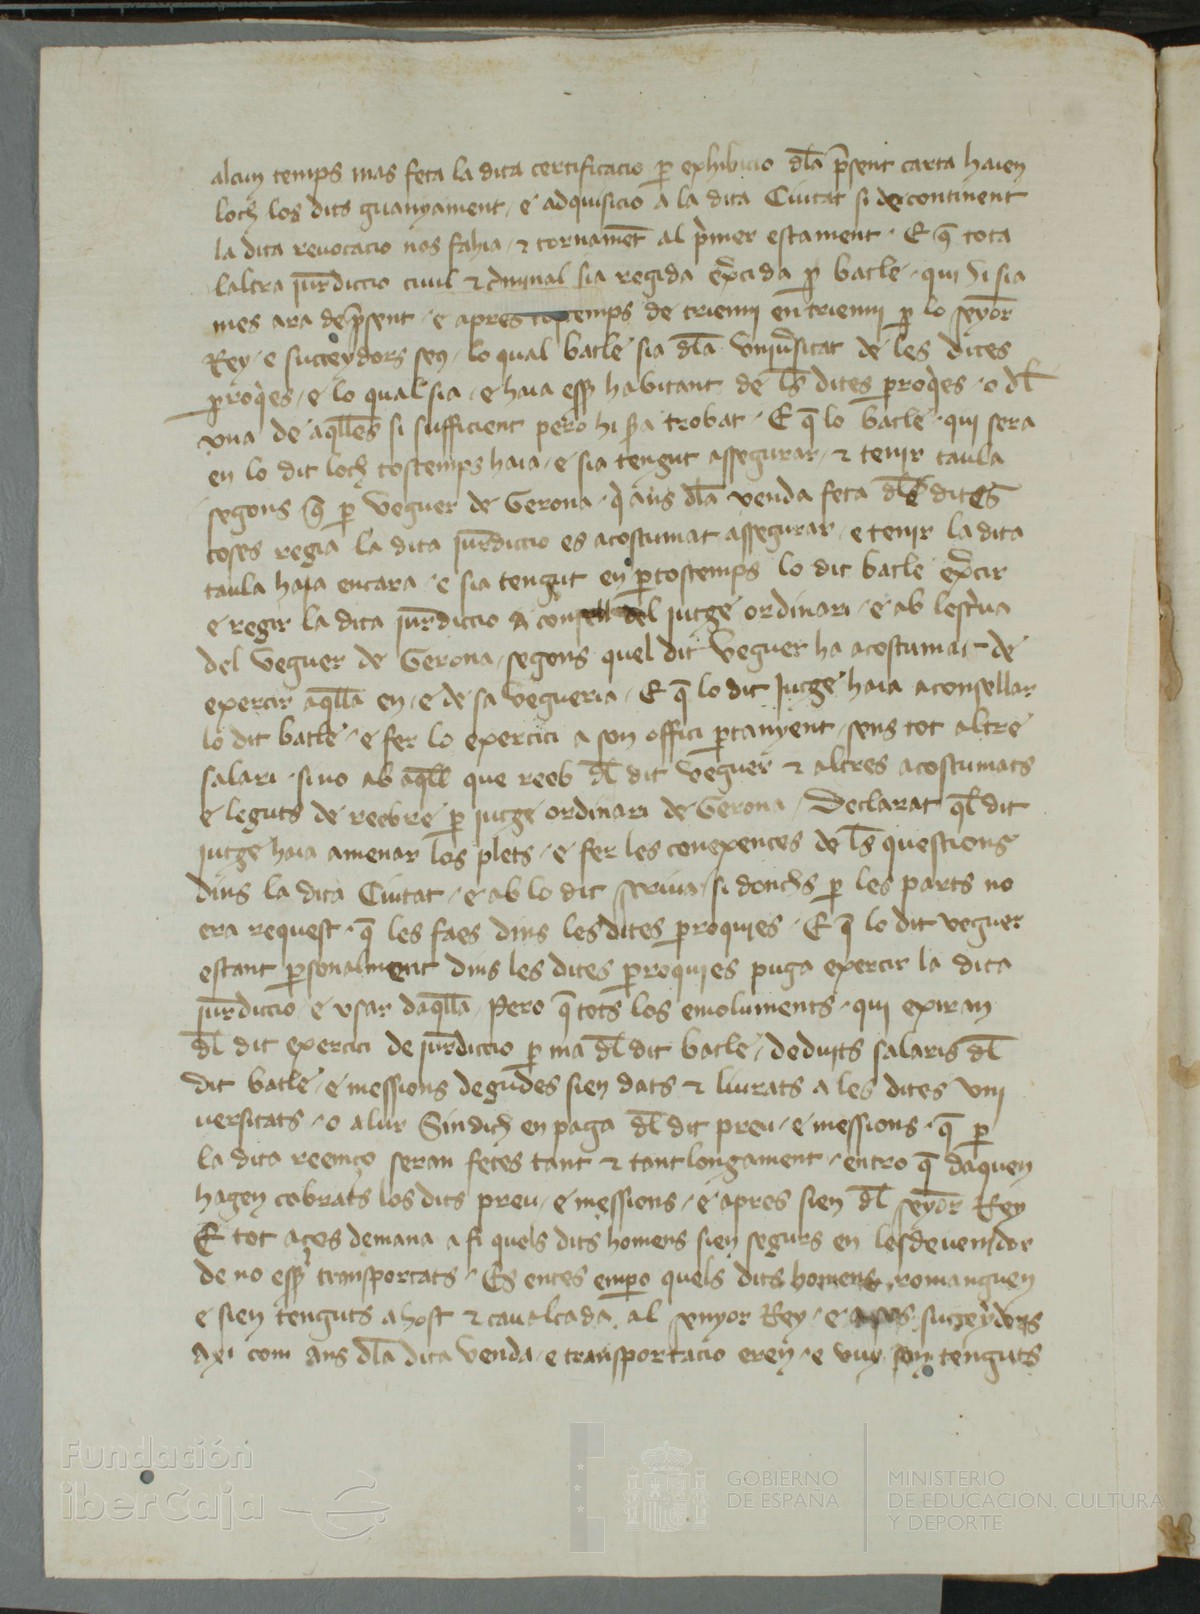 alcun temps mas feta la dita certificacio p exhibicio dla psent carta haien
loch los dits guanyament / e adquisicio a la dita Ciutat si decontinent
la dita reuocacio nos fahia / & tornamet al pmer estament · E q tota
laltra jurdiccio ciuil & cminal sia regida excida p batle · qui hi sia
mes ara depsent / e apres tostemps de trienni en trienni p lo seyor
Rey / e succeydors seus / lo qual batle sia dla vniusitat de les dites
proqes / e lo qual sia / e haia essr habitant de ls dites proqes · o dl
vna de aqlles si sufficient pero hi sa trobat · E q lo batle · qui sera
en lo dit loch tostemps haia / e sia tengut assegurar / & tenir taula
segons q p veguer de Gerona · q ans dla venda feta dls dites
coses regia la dita jurdiccio es acostumat assegurar / e tenir la dita
taula haia encara · e sia tengut en ptostemps lo dit batle excir
e regir la dita jurdiccio a consell del jutge ordinari / e ab lescua
del veguer de Gerona / segons quel dit veguer ha acostumat de
exercir aqlla en / e de sa vegueria / E q lo dit jutge haia aconsellar
lo dit batle / e fer lo exercici a son offici ptanyent / sens tot altre
salari · sino ab aqll que reeb dl dit veguer & altres acostumats
e leguts de reebre p jutge ordinari de Gerona / Declarat ql dit
jutge haia amenar los plets / e fer les conexences de ls questions
dins la dita Ciutat / e ab lo dit scriua / si donchs p les parts no
era request · q les faes dins les dites proquies · E q lo dit veguer
estant psonalment dins les dites proquies puga exercir la dita
jurdiccio / e vsar daqlla / Pero q tots los emoluments · qui exiran
dl dit exercici de jurdiccio p ma dl dit batle / deduits salaris dl
dit batle / e messions degudes sien dats & liurats a les dites vni
uersitats · o a lur Sindich en paga dl dit preu / e messions · q p
la dita reemço seran fetes tant & tant longament / entro q daquen
hagen cobrats los dits preu / e messions / e apres sien dl seyor Rey
E tot aços demana a fi quels dits homens sien segurs en lesdeuenidor
de no essr transportats · Es entes empo quels dits homens romanguen
e sien tenguts a host & caualcada al senyor Rey / e a sos succeydors
axi com ans dla dita venda / e transportacio eren / e vuy son tenguts
Fundación
iberCaja
GOBIERNO
DE ESPAÑA
MINISTERIO
DE EDUCACION, CULTURA
Y DEPORTE